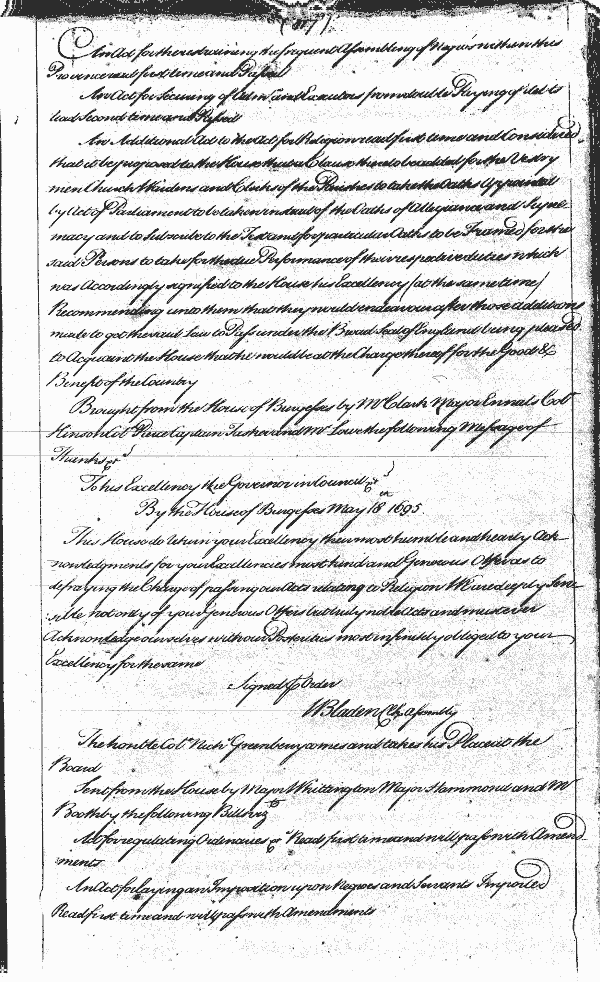 An Act for the restraining the frequent Assembling of Negro's within this
Province read first time and Passed
An Act for Secureing of Adm.rs and Executors from double Paying of debts
read Second time and Passed
An Additional Act to the Act for Religion read first time and Considered
that it be proposed to the House that a Clause thereto be added for the Vestry
men Church Wardens and Clerks of the Parishes to take the Oaths Appointed
by Act of Parliament to be taken instead of the Oaths of Allegiance and Supre
macy and to Subscribe to the Test and for particular Oaths to be Framed for the
said Persons to take for the due Performance of their respective duties which
was Accordingly signified to the House his Excellency (at the same time)
Recommending unto them that they would endeavour after those additions
made to get the said Law to Pass under the Broad Seal of England being pleased
to Acquaint the House that he would be at the Charge thereof for the Good &
Benefit of the Country
Brought from the House of Burgesses by Mr Clark Major Ennals Colo
Hinson Colo Pearce Captain Tasker and Mr Lowe the following Message of
Thanks
To his Excellency the Governor in Council
By the House of Burgesses May 18 1695.
This House do return your Excellency their most humble and hearty Ack
nowledgments for your Excellencies most kind and Generous Offer as to
defraying the Charge of passing our Acts relating a Religion We are deeply Sen
sible not only of your Generous Offers but truly noble Acts and must ever
Acknowledge ourselves without Posterities most infinitely obliged to your
Excellency for the same
Signed p Order
W Bladen Clk Assembly
The honble Colo Nich.o Greenbery comes and takes his Place at the
Board
Sent from the House by Major Whittington Major Hammond and Mr
Boothby the following Bills viz
Act for regulating Ordinaries Read first time and will pass with Amend
ments
An Act for laying an Imposition upon Negroes and Servants Imported
Read first time and will pass with Amendments